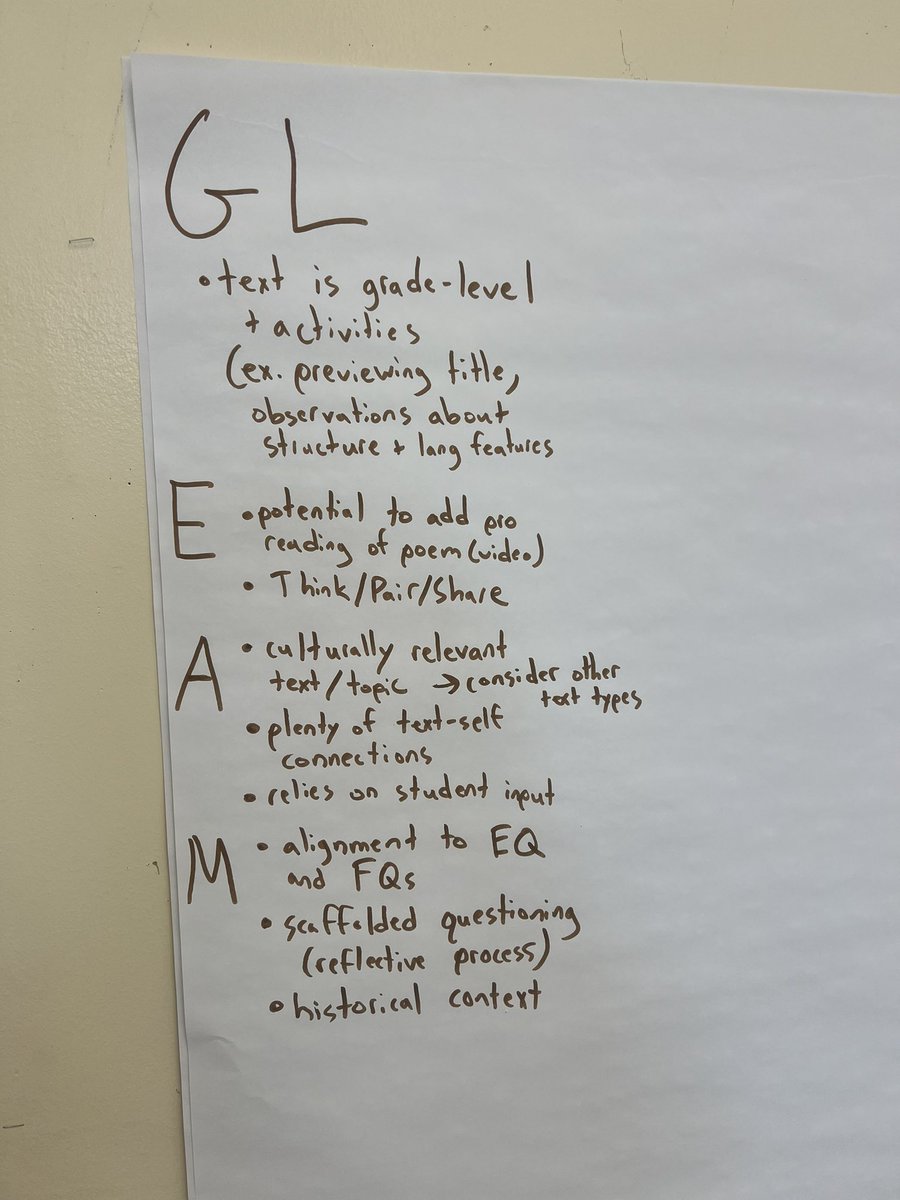 GL
• text is grade-level
+ activities
(ex. previewing title,
observations about
structure + lang features
E • potential to add pro
reading of poem (video)
• Think/Pair/Share
A • culturally relevant
text/topic → consider other
text types
• plenty of text-self
connections
• relies on student input
M • alignment to EQ
and FQs
• scaffolded questioning
(reflective process)
• historical context